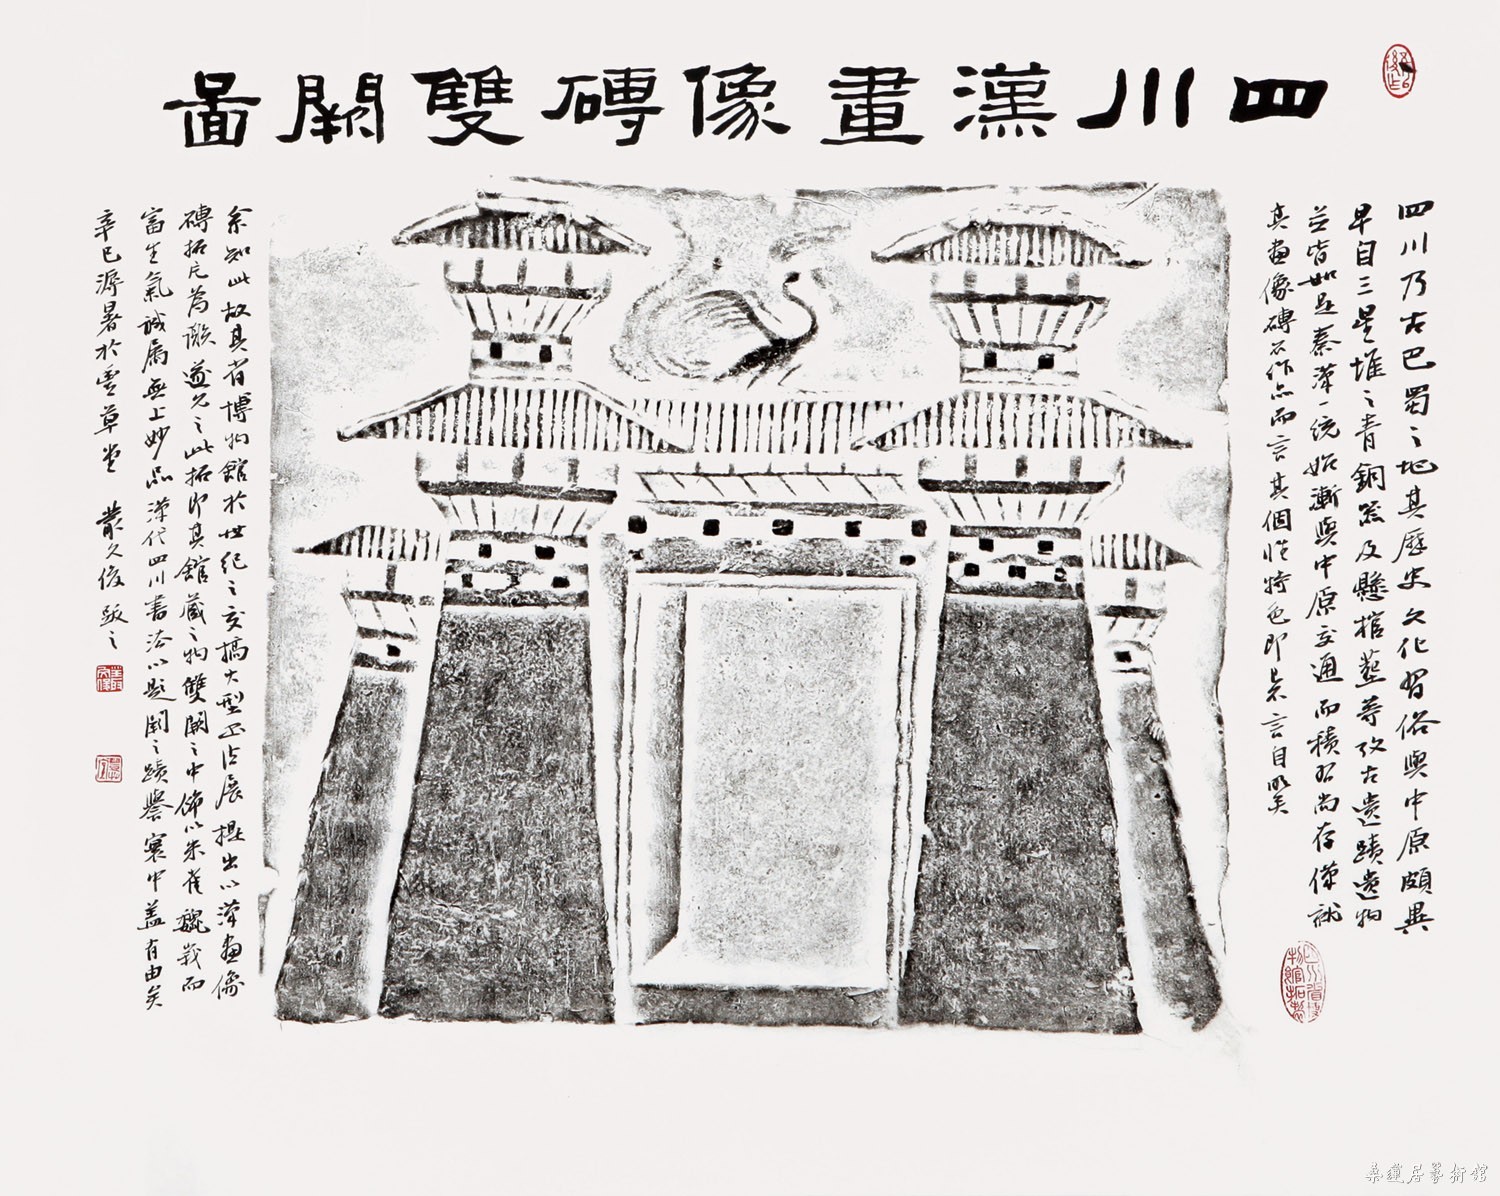 四川漢畫像磚雙闕圖
四川乃古巴蜀之地其歷史文化習俗與中原頗異
早自三星堆之青銅器及懸棺墓等考古遺蹟遺物
並皆如是秦漢一統始漸與中原交通而積習尚存僅就
其畫像磚石作品而言其個性特色即是不言自明矣
余知此故其省博物館於世紀之交搞大型出展提出以漢畫像
磚拓片為
此拓即其館藏之物雙闕之中飾以朱雀巍峩而
富生氣誠屬無上妙品漢代四川書法以題闕之蹟譽寰中蓋有由矣
辛巳溽暑於雲草堂 叢文俊跋之
四川省博物館拓製
桑蓮居藝術館